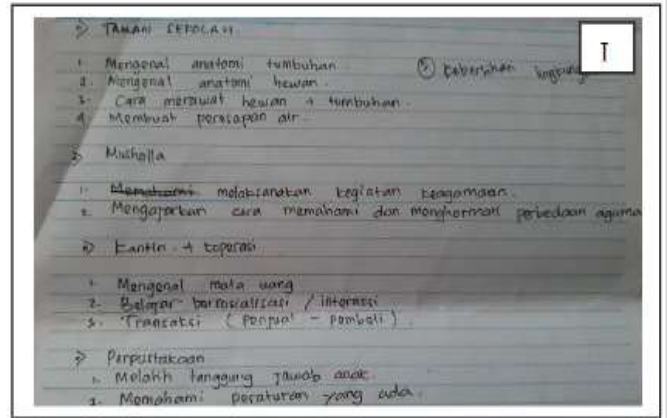 TAMAN SEKOLAH
1. Mengenal anatomi tumbuhan
2. Mengenal anatomi hewan.
3. Cara merawat hewan + tumbuhan.
4. Membuat perosapan air.
⑤ kebersihan
I
Musholla
1. Memahami melaksanakan kegiatan keagamaan.
2. Mengajarkan cara memahami dan menghormati perbedaan agama
Kantin + koperasi
1. Mengenal mata uang
2. Belajar bersosialisasi / interaksi
3. Transaksi (Penjual - pembeli).
Perpustakaan
1. Melatih tanggung jawab anak.
2. Memahami peraturan yang ada.